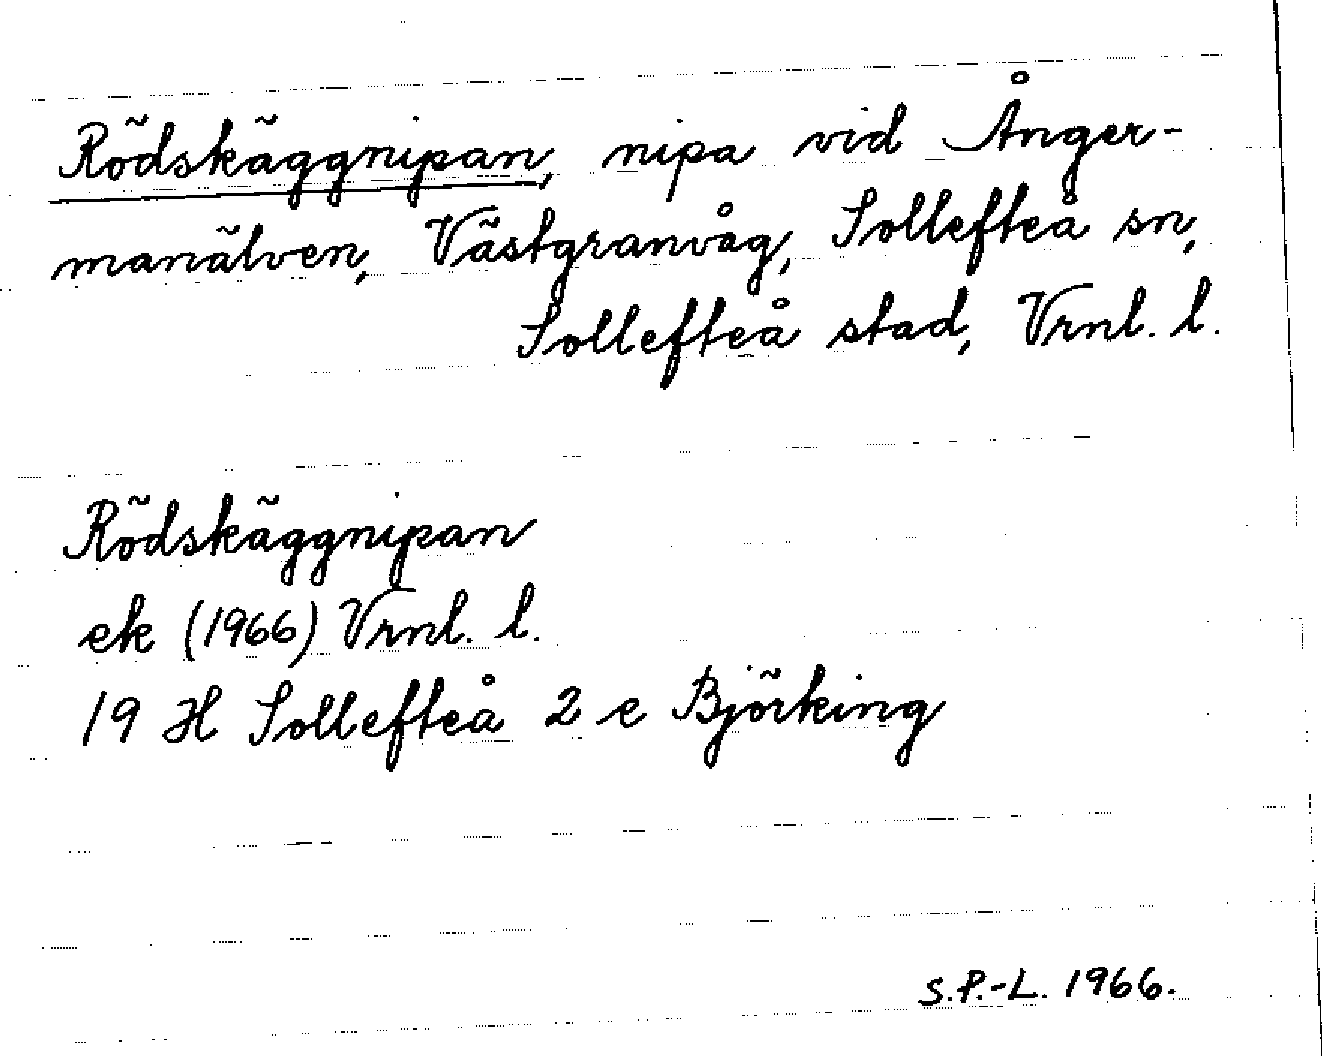 Rödskäggnipan, nipa vid Ånger-
manälven, Västgranvåg, Sollefteå sn,
Sollefteå stad, Vrnl. l.
Rödskäggnipan
ek (1966) Vrnl. l.
19 H Sollefteå 2 e Björking
S.P.-L. 1966.